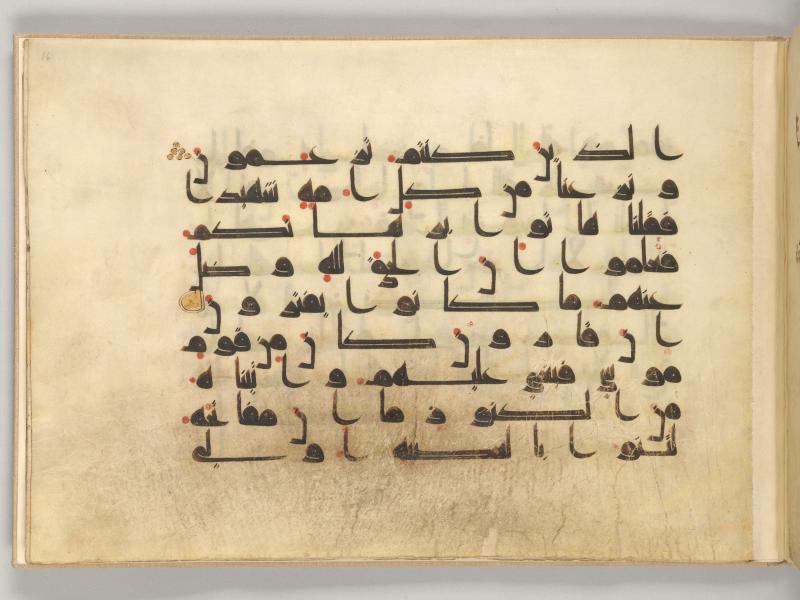 16
الذين كنتم تزعمون
ونزعنا من كل امة شهيدا
فقلنا هاتوا برهانكم
فعلموا ان الحق لله وضل
عنهم ما كانوا يفترون
ان قارون كان من قوم
موسى فبغى عليهم واتينه
من الكنوز ما ان مفاتحه
لتنوا بالعصبة اولى